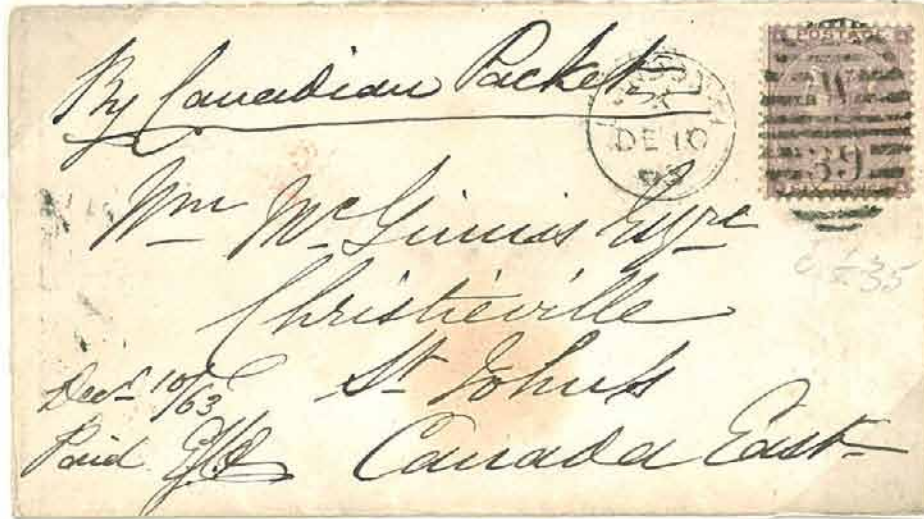 By Canadian Packet
POSTAGE
DE 10
63
39
SIX PENCE
Wm McGinnis Esqre
Christieville
St Johns
Canada East
Decr 10/63
Paid
35